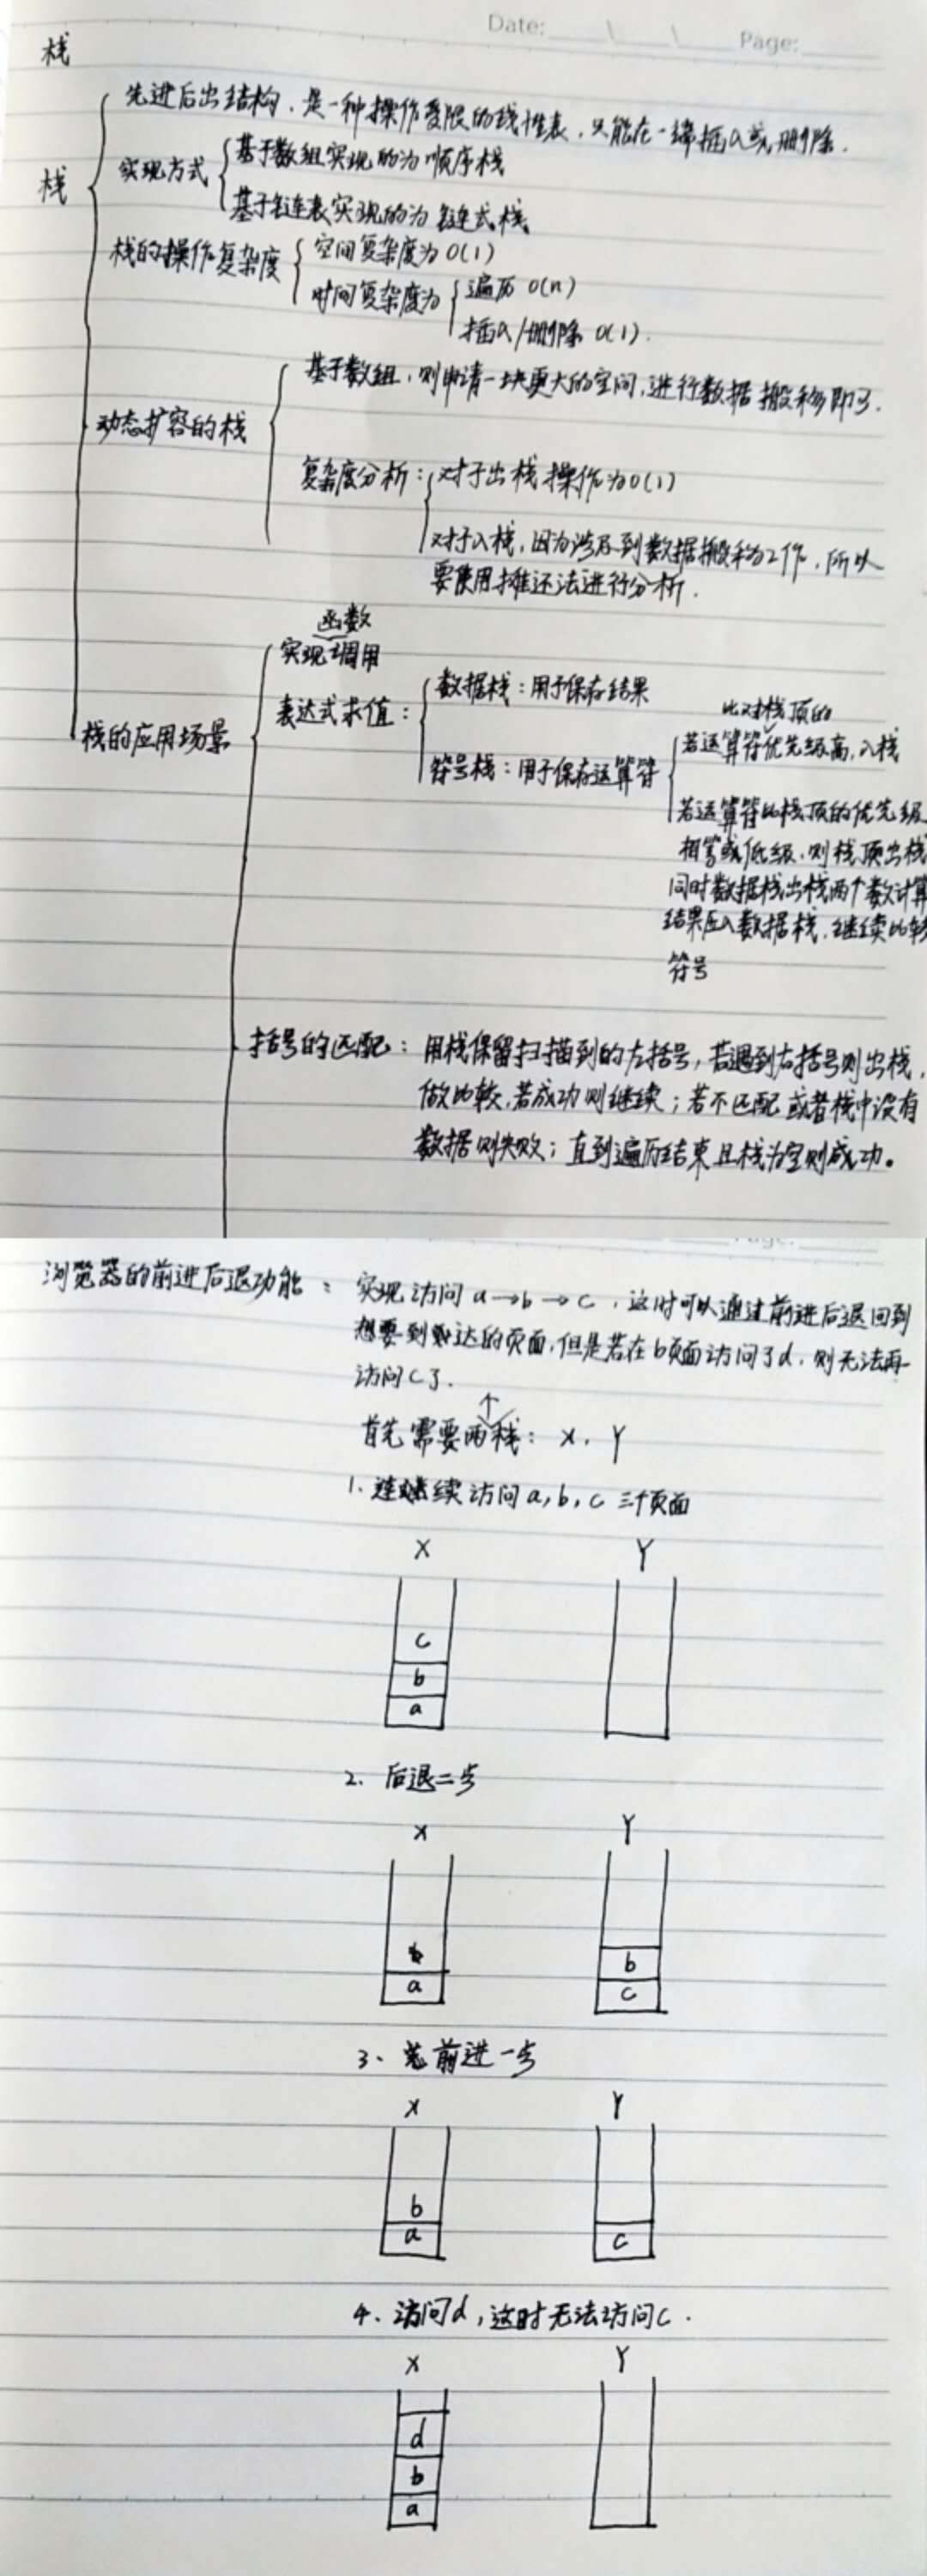 Date: \ \ Page:
栈
栈
先进后出结构，是一种操作受限的线性表，只能在一端插入或删除.
实现方式
基于数组实现的为顺序栈
基于链表实现的为链式栈
栈的操作复杂度
空间复杂度为 O(1)
时间复杂度为
遍历 O(n)
插入/删除 O(1).
动态扩容的栈
基于数组，则申请一块更大的空间，进行数据搬移即可.
复杂度分析：
对于出栈操作为O(1)
对于入栈，因为涉及到数据搬移为工作，所以
要使用摊还法进行分析.
栈的应用场景
函数
实现调用
表达式求值：
数据栈：用于保存结果
符号栈：用于保存运算符
比对栈顶的
若运算符优先级高，入栈
若运算符比栈顶的优先级
相等或低级，则栈顶出栈
同时数据栈出栈两个数计算
结果压入数据栈，继续比较
符号
括号的匹配：用栈保留扫描到的左括号，若遇到右括号则出栈，
做比较，若成功则继续；若不匹配或者栈中没有
数据则失败；直到遍历结束且栈为空则成功。
浏览器的前进后退功能：实现访问 a→b→c，这时可以通过前进后退回到
想要到达的页面，但是若在b页面访问了d，则无法再
访问c了.
↑
首先需要两栈：X，Y
1. 连续访问 a, b, c 三个页面
X Y
c
b
a
2、后退二步
X Y
b
a c
3、前进一步
X Y
b
a c
4、访问d，这时无法访问c.
X Y
d
b
a